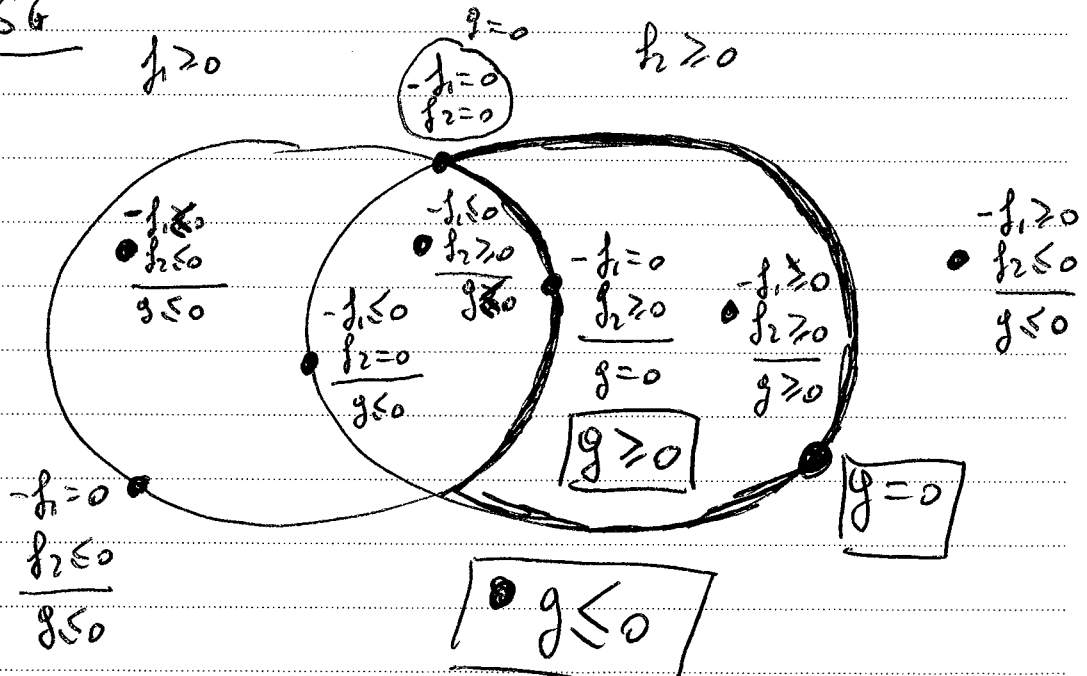 f₁ ≥ 0
g = 0
-f₁ = 0
f₂ = 0
f₂ ≥ 0
f₂ ≤ 0
g ≤ 0
-f₁ ≤ 0
f₂ ≥ 0
-f₁ ≤ 0
f₂ = 0
g ≤ 0
-f₁ = 0
f₂ ≥ 0
g = 0
-f₁ ≥ 0
f₂ ≥ 0
g ≥ 0
-f₁ ≥ 0
f₂ ≤ 0
g ≤ 0
g ≥ 0
g = 0
-f₁ = 0
f₂ ≤ 0
g ≤ 0
g ≤ 0